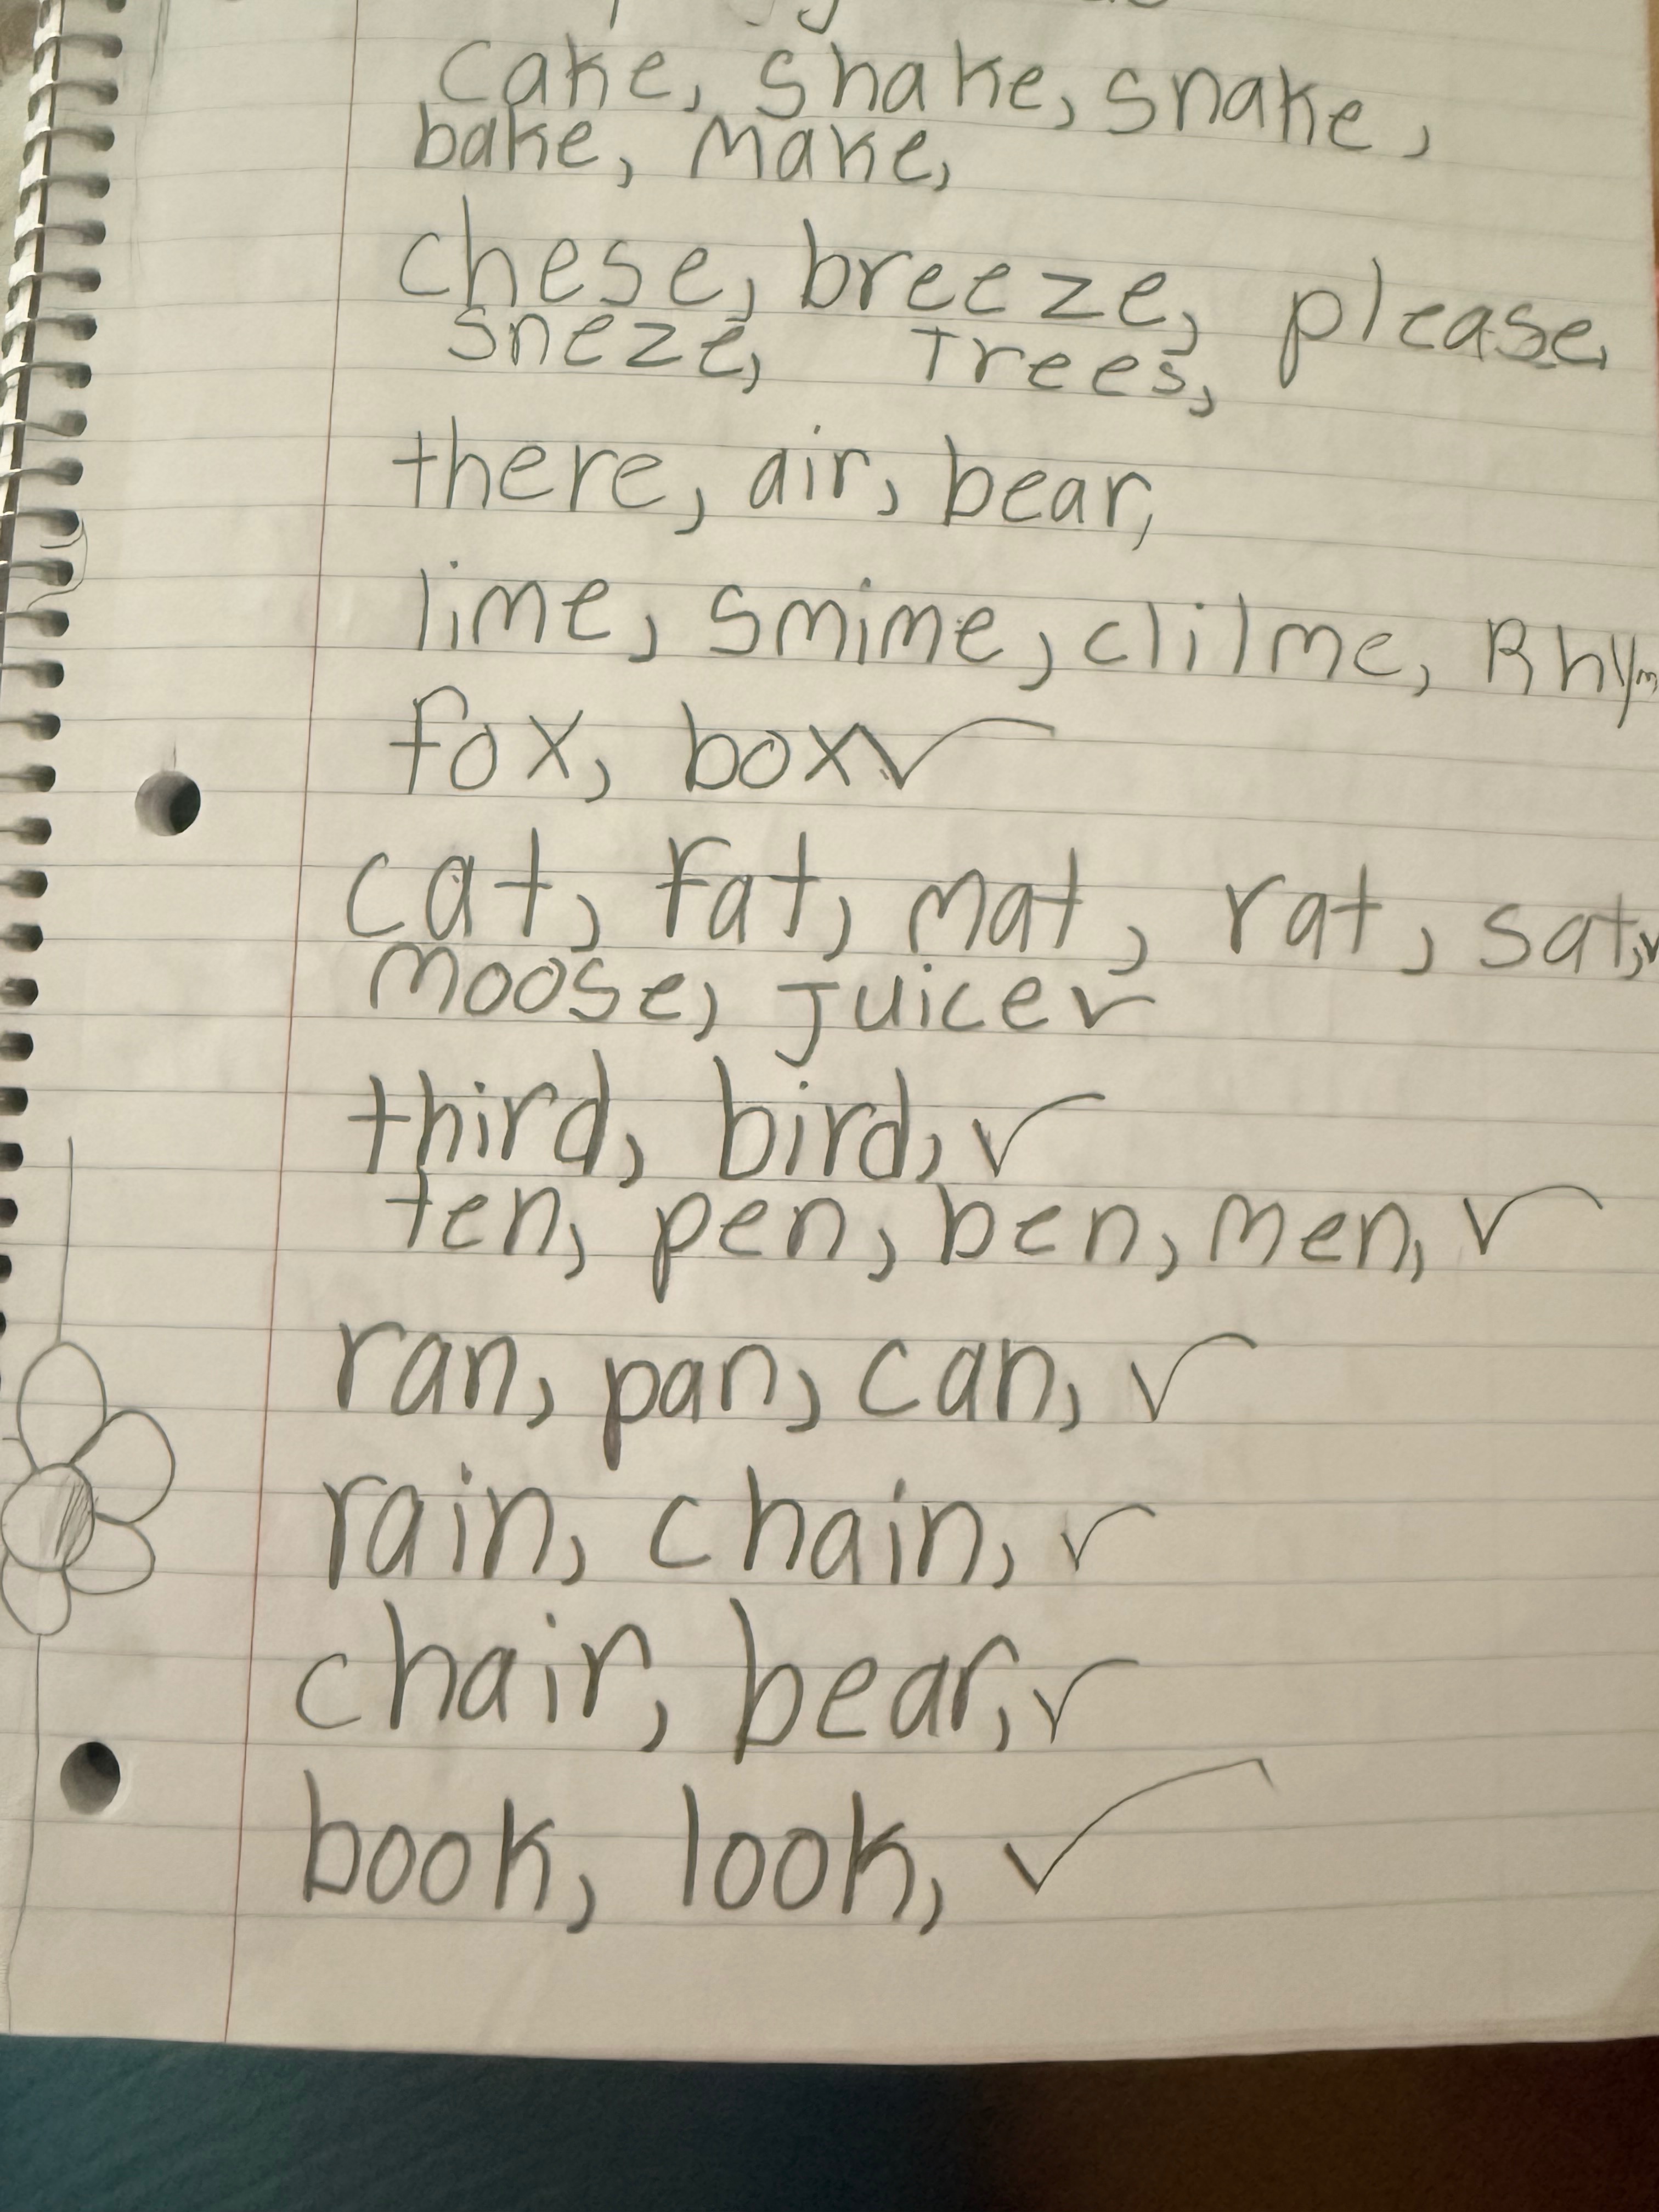 cake, shake, snake,
bake, make,
chese, breeze, please,
sneze, Trees,
there, air, bear,
lime, smime, clilme, Rhym
fox, box ✓
cat, fat, mat, rat, sat, ✓
moose, juice ✓
third, bird, ✓
ten, pen, ben, men, ✓
ran, pan, can, ✓
rain, chain, ✓
chair, bear, ✓
book, look, ✓